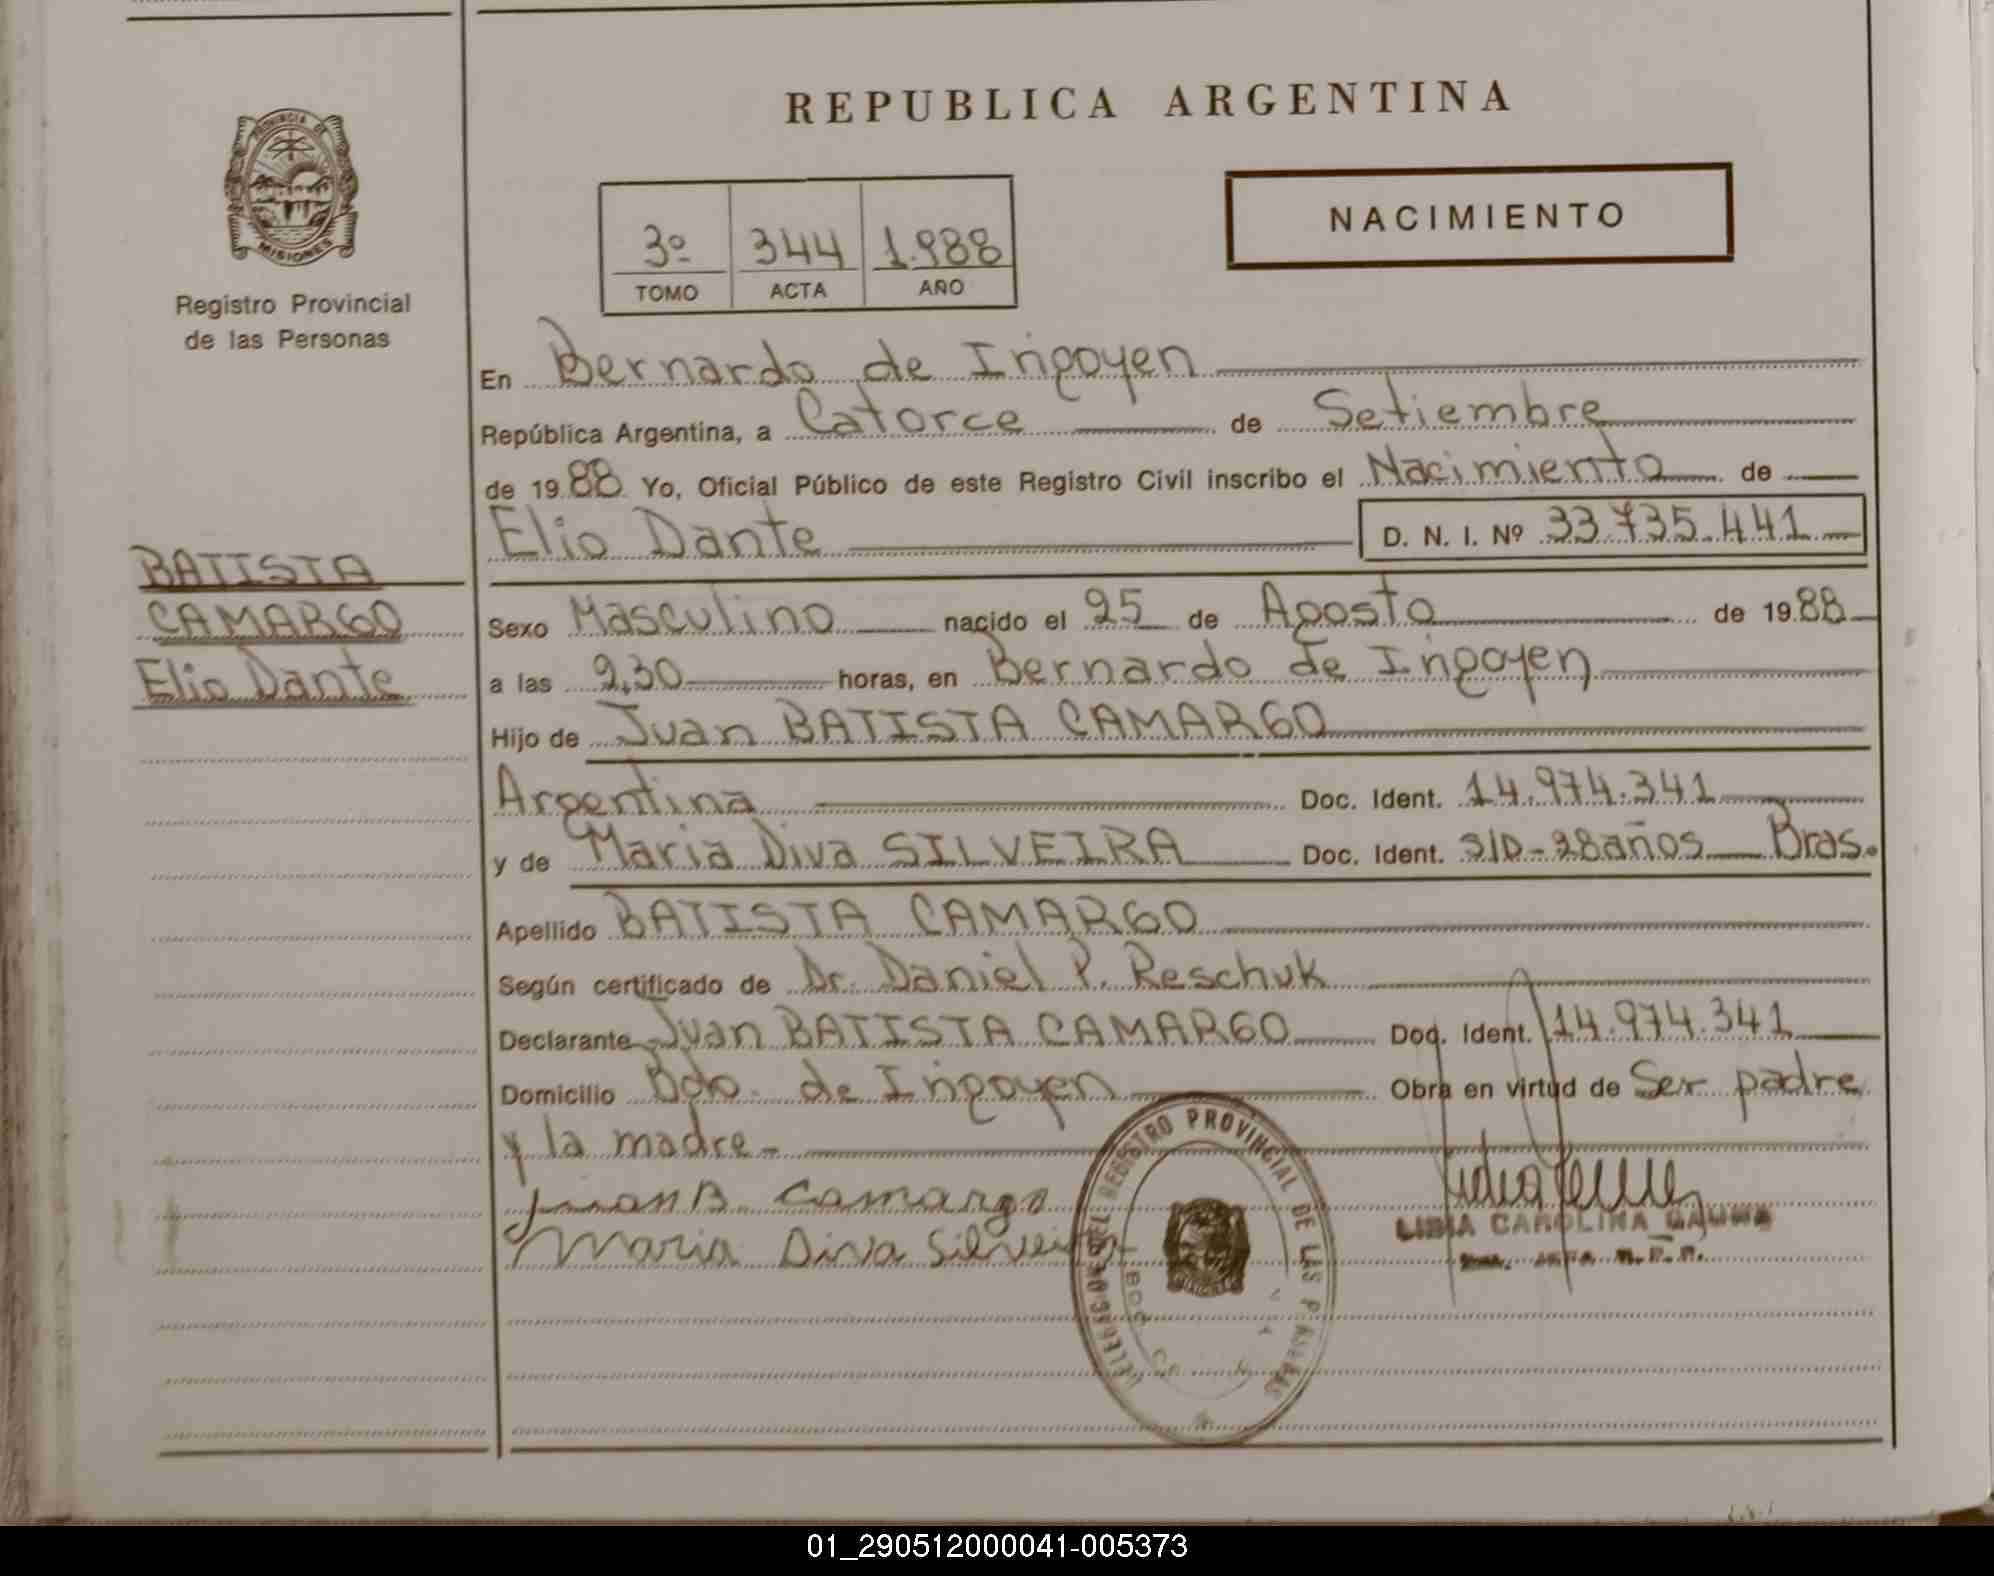 REPUBLICA ARGENTINA
PROVINCIA DE
MISIONES
Registro Provincial
de las Personas
3º 344 1.988
TOMO ACTA AÑO
NACIMIENTO
En Bernardo de Irigoyen
República Argentina, a Catorce de Setiembre
de 19 88 Yo, Oficial Público de este Registro Civil inscribo el Nacimiento de
Elio Dante D. N. I. Nº 33.735.441
BATISTA
CAMARGO
Elio Dante
Sexo Masculino nacido el 25 de Agosto de 19 88
a las 9,30 horas, en Bernardo de Irigoyen
Hijo de Juan BATISTA CAMARGO
Argentina Doc. Ident. 14.974.341
y de Maria Diva SILVEIRA Doc. Ident. S/D-28 años Bras.
Apellido BATISTA CAMARGO
Según certificado de Dr. Daniel P. Reschuk
Declarante Juan BATISTA CAMARGO Doc. Ident. 14.974.341
Domicilio Bdo. de Irigoyen Obra en virtud de Ser padre
y la madre-
Juan B. Camargo
Maria Diva Silveira
REGISTRO PROVINCIAL DE LAS
CAROLINA
01_290512000041-005373